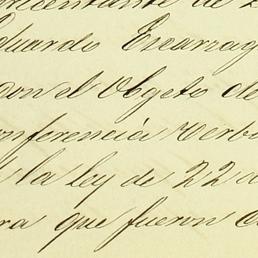 Eduardo Encarzag
con el Objeto de
conferencia verb
la ley de 22 d
ra que fueron